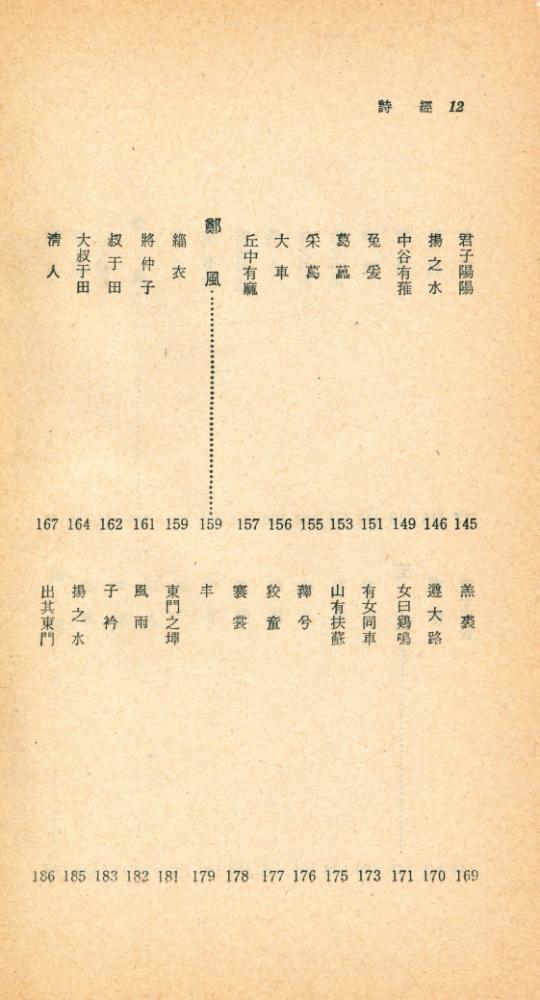 詩 經 12
君子陽陽 145
揚之水 146
中谷有蓷 149
兔爰 151
葛藟 153
采葛 155
大車 156
丘中有麻 157
鄭風 159
緇衣 159
將仲子 161
叔于田 162
大叔于田 164
清人 167
羔裘 169
遵大路 170
女曰鷄鳴 171
有女同車 173
山有扶蘇 175
蘀兮 176
狡童 177
褰裳 178
丰 179
東門之墠 181
風雨 182
子衿 183
揚之水 185
出其東門 186